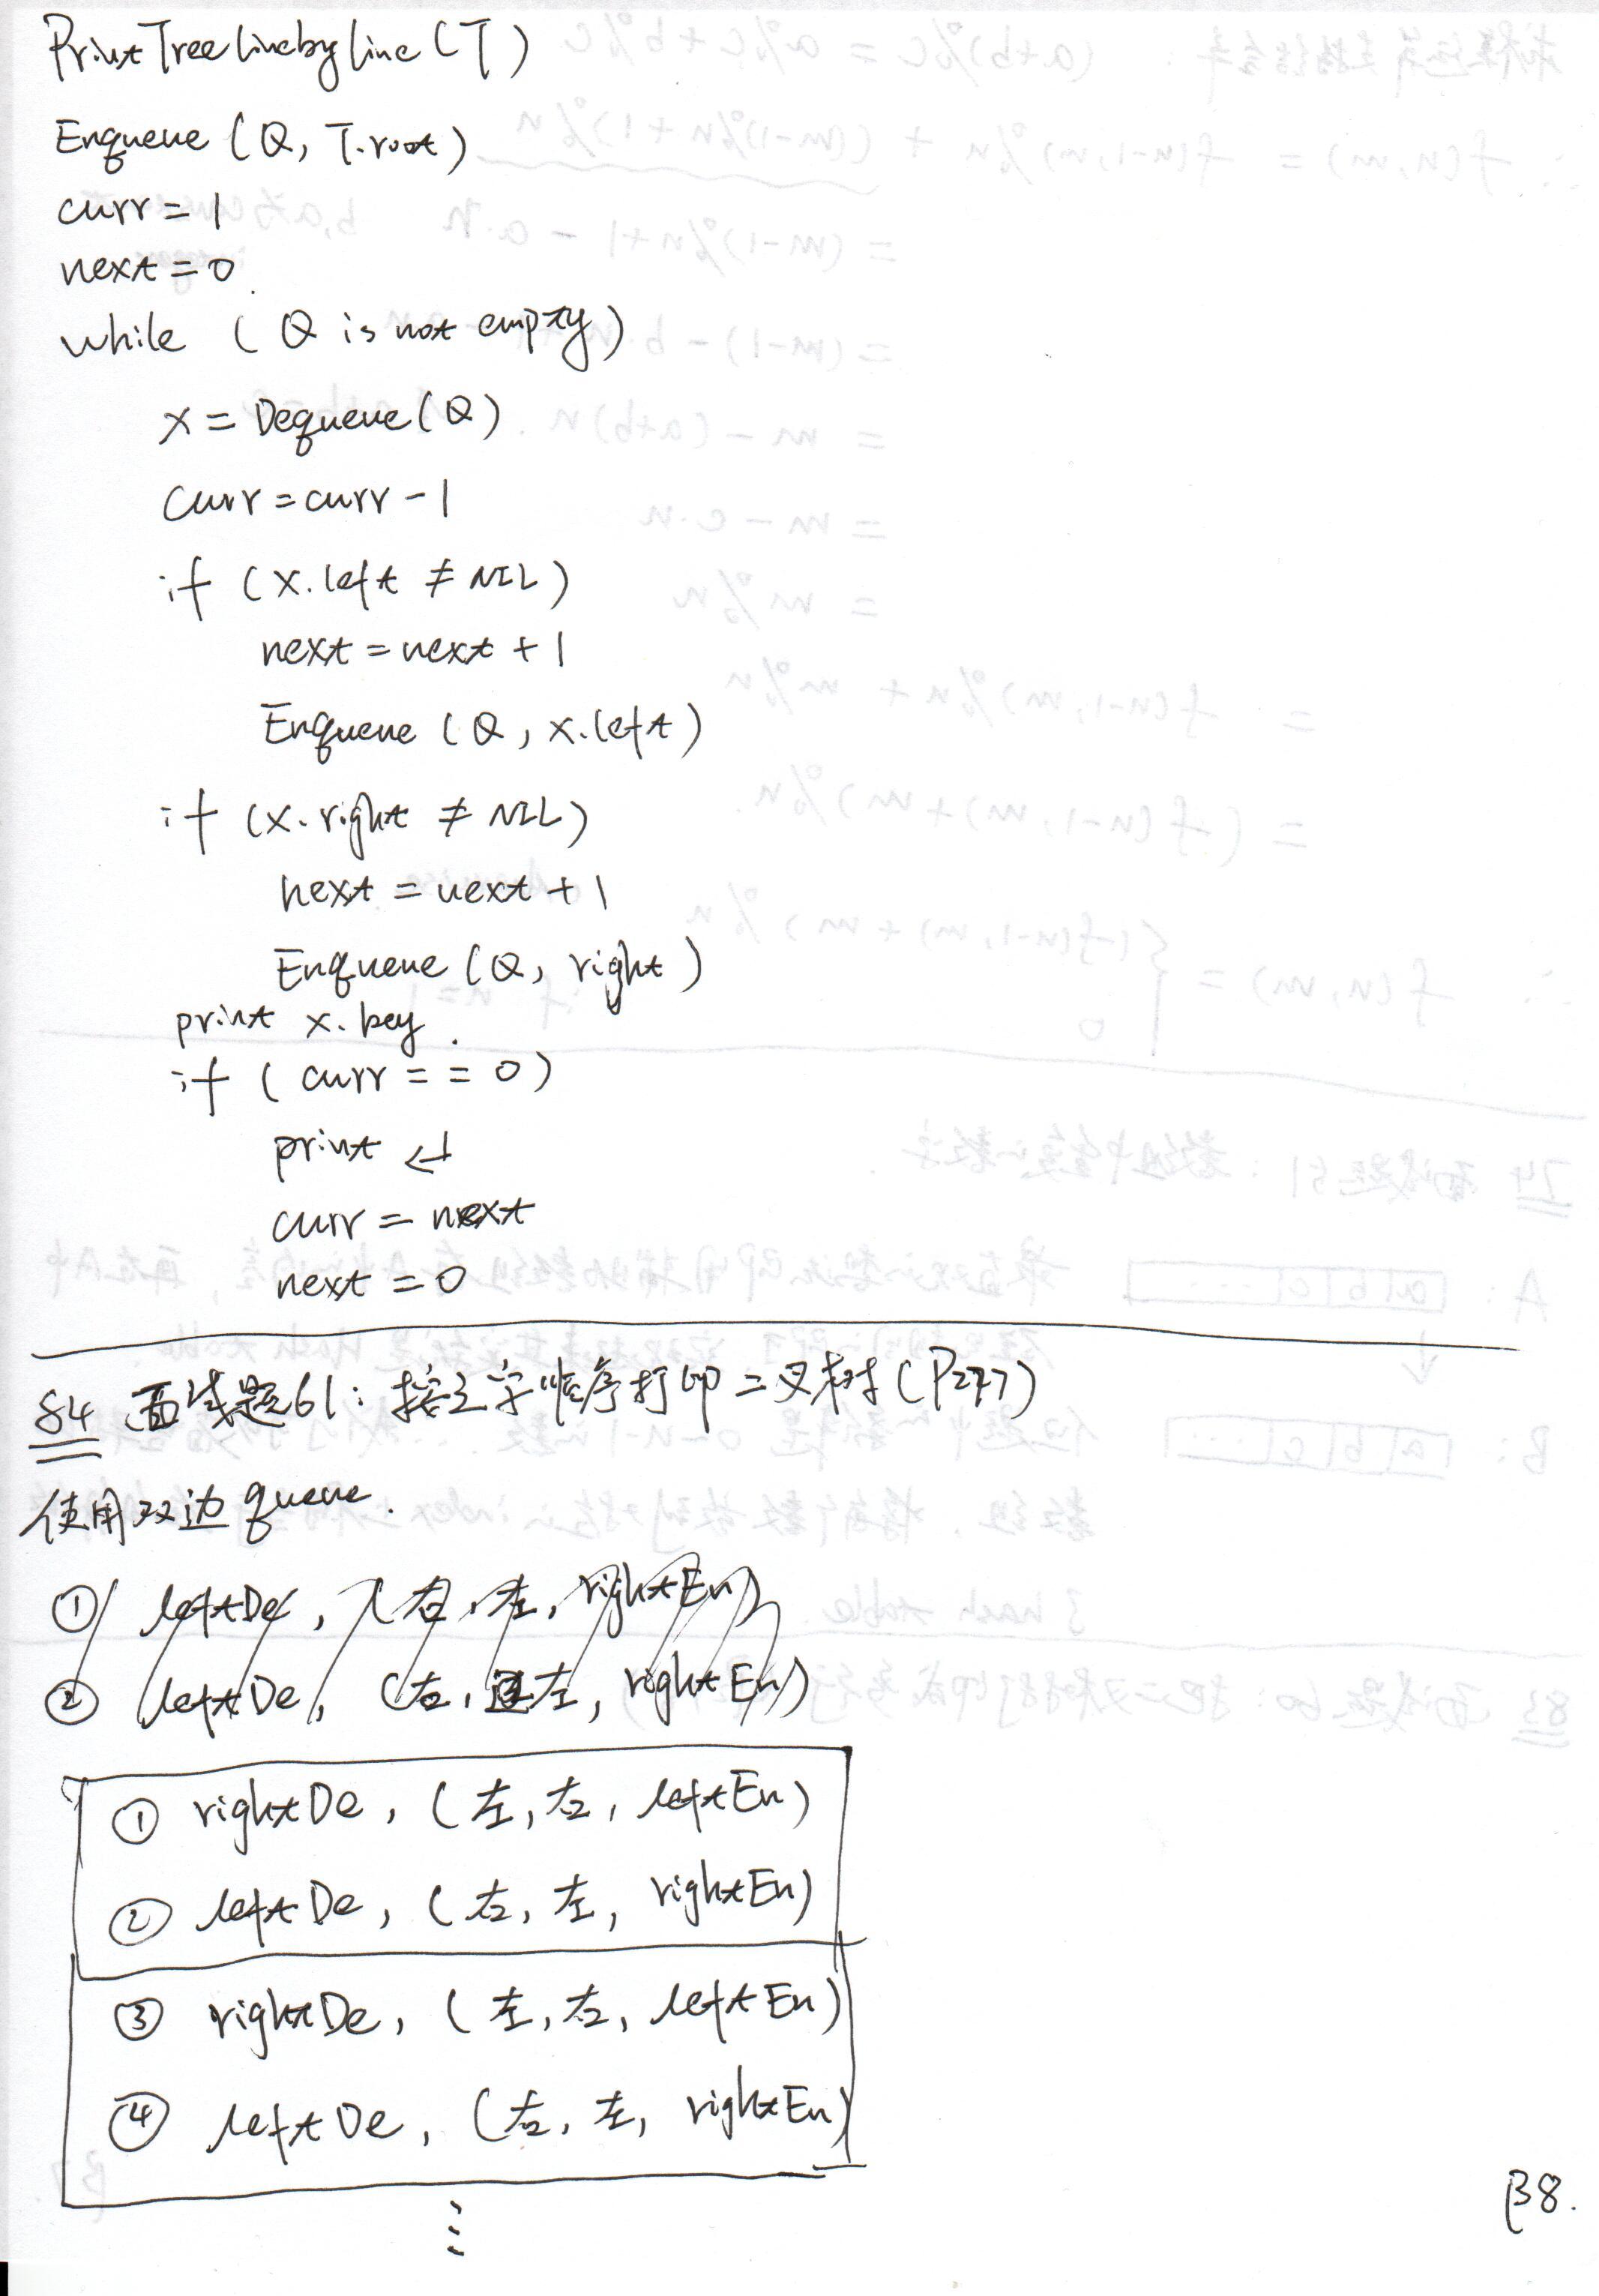 PrintTreelinebyline(T)
Enqueue(Q, T.root)
curr = 1
next = 0
while (Q is not empty)
x = Dequeue(Q)
curr = curr - 1
if (x.left ≠ NIL)
next = next + 1
Enqueue(Q, x.left)
if (x.right ≠ NIL)
next = next + 1
Enqueue(Q, right)
print x.key.
if (curr == 0)
print ↵
curr = next
next = 0
84 面试题61：按之字顺序打印二叉树(P277)
使用双边queue.
① leftDe, (右, 左, rightEn)
② leftDe, (右, 左, rightEn)
① rightDe, (左, 右, leftEn)
② leftDe, (右, 左, rightEn)
③ rightDe, (左, 右, leftEn)
④ leftDe, (右, 左, rightEn)
⋮
P38.